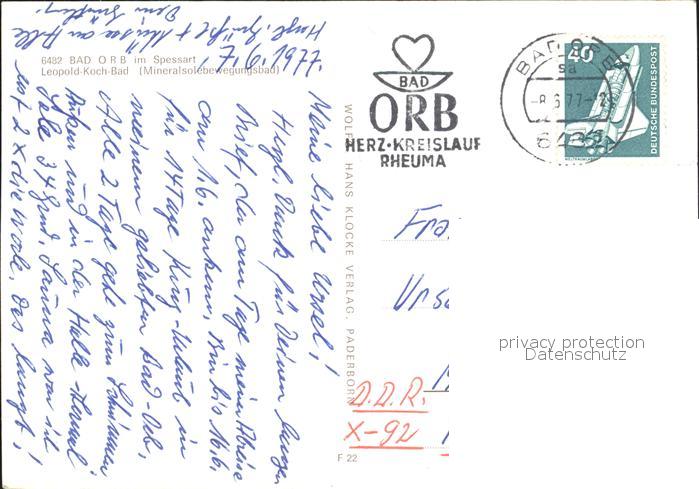 6482 BAD ORB im Spessart
Leopold-Koch-Bad (Mineralsolebewegungsbad)
7.6.1977.
Meine liebe Ursel!
Herzl. Dank für Deinen lieben
Brief, der am Tage meiner Abreise
am 1.6. ankam, Bin bis 16.6.
für 14 Tage Kurz-Urlaub in
meinem geliebten Bad-Orb,
Alle 2 Tage geht zum Schwimmen
Außen und in der Halle - Thermal
Sole 34 Grad. Sauna war ich
erst 2 x die Woche, das langt!
Herzl. Grüße + Küsse an Alle
Dein
WOLFGANG HANS KLOCKE VERLAG, PADERBORN
F 22
BAD
ORB
HERZ-KREISLAUF
RHEUMA
BAD ORB
sa
-8.6.77-12
6482
40
DEUTSCHE BUNDESPOST
WELTRAUMLABOR
Fra
Urs
D.D.R.
X-92
privacy protection
Datenschutz